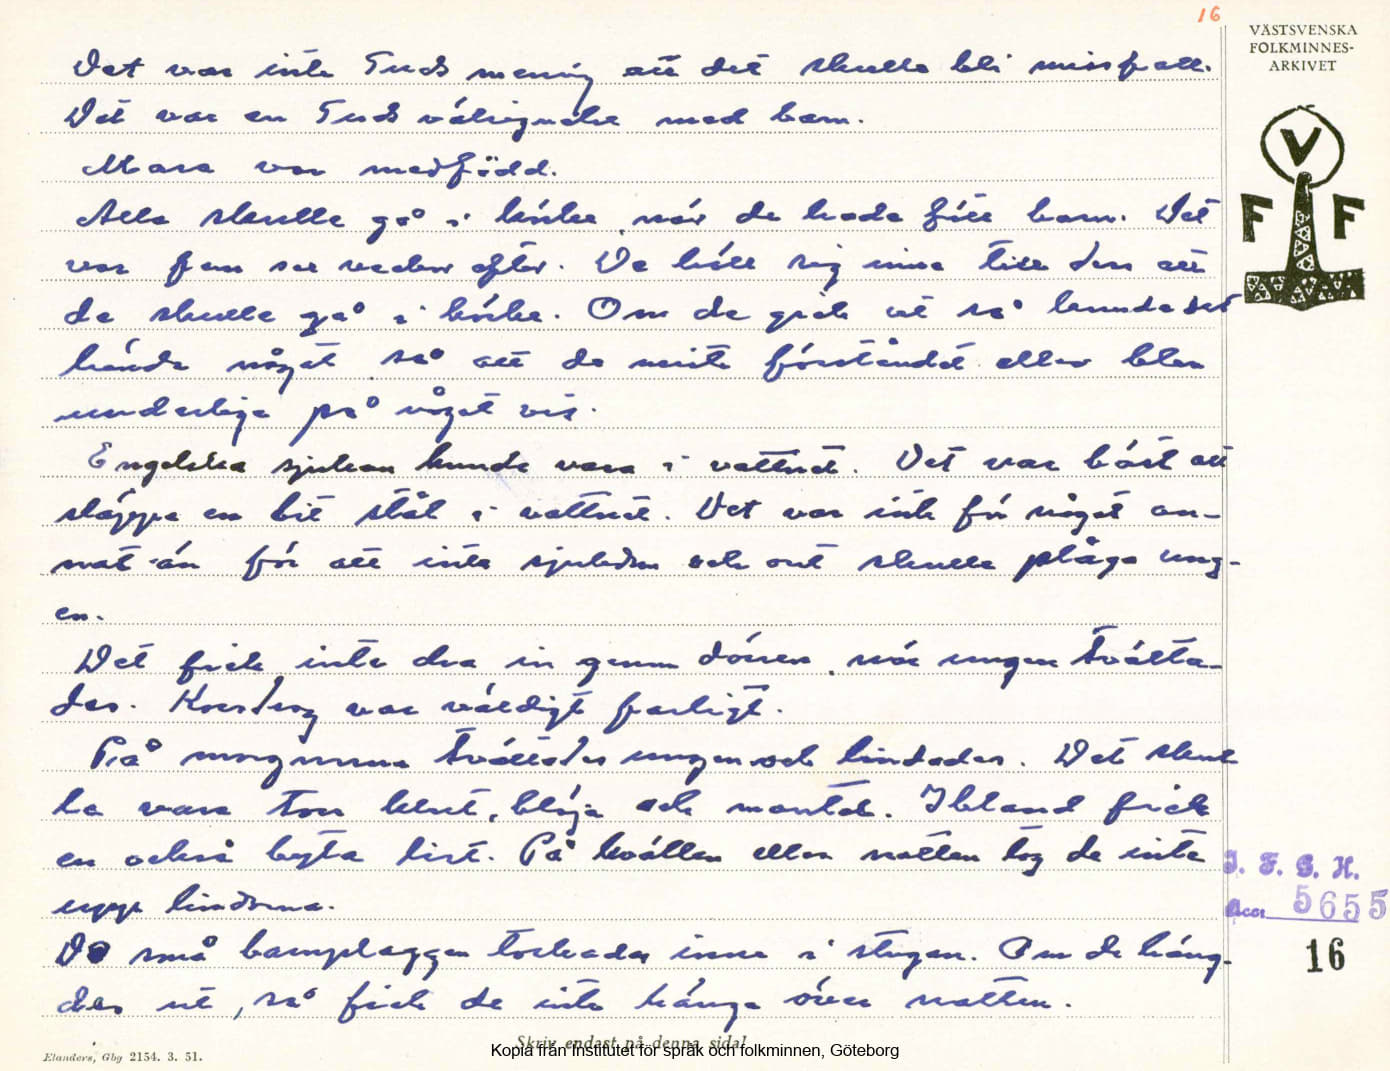 16
VÄSTSVENSKA
FOLKMINNES-
ARKIVET
V
F F
Det var inte Guds mening att det skulle bli missfall.
Det var en Guds välsignelse med barn.
Mara var medfödd.
Alla skulle gå i körka, när de hade fått barn. Det
var fem sex veckor efter. De höll sig inne till dess att
de skulle gå i körka. Om de gick ut så kunde det
hända något så att de miste förståndet eller blev
underliga på något vis.
Engelska sjukan kunde vara i vattnet. Det var bäst att
släppa en bit stål i vattnet. Det var inte för något an-
nat än för att inte sjukdom och ont skulle plåga ung-
en.
Det fick inte dra in genom dörren, när ungen tvätta-
des. Korsdrag var väldigt farligt.
På morgnarna tvättades ungen och lindades. Det skul
le vara torr klut, blöja och mantel. Ibland fick
en också byta list. På kvällen eller natten tog de inte
upp lindorna.
De små barnplaggen torkades inne i stugan. Om de häng-
des ut, så fick de inte hänga över natten.
I. F. G. H.
Acc. 5655
16
Skriv endast på denna sida!
Kopia från Institutet för språk och folkminnen, Göteborg
Elanders, Gbg 2154. 3. 51.